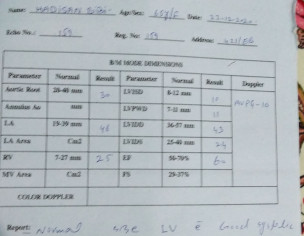 Name: HADISAN BIBI Age/Sex: 65y/F Date: 22-12-2020
Echo No.: 159 Reg. No: 159 Address:
B/M MODE DIMENSIONS
Parameter Normal Result Parameter Normal Result Doppler
Aortic Root 20-40 mm 30 LVISD 8-12 mm 11
Annulus Ao mm LVPWD 7-11 mm 11
LA 19-39 mm LVIDD 36-57 mm 43
LA Area Cm2 LVIDS 25-40 mm 24
RV 7-27 mm 25 EF 50-70% 60
MV Area Cm2 FS 29-37%
COLOR DOPPLER
Report: Normal size LV ē Good systolic